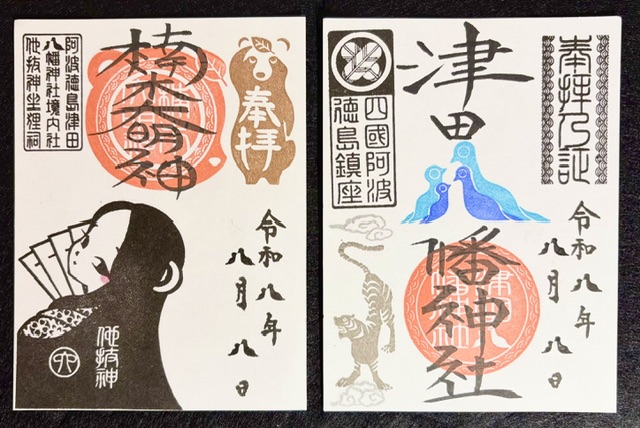 奉拝
楠木大明神
阿波徳島津田
八幡神社境内社
他抜神坐狸祠
令和八年
八月八日
他抜神
奉拝之証
津田
幡神社
四國阿波
徳島鎮座
令和八年
八月八日